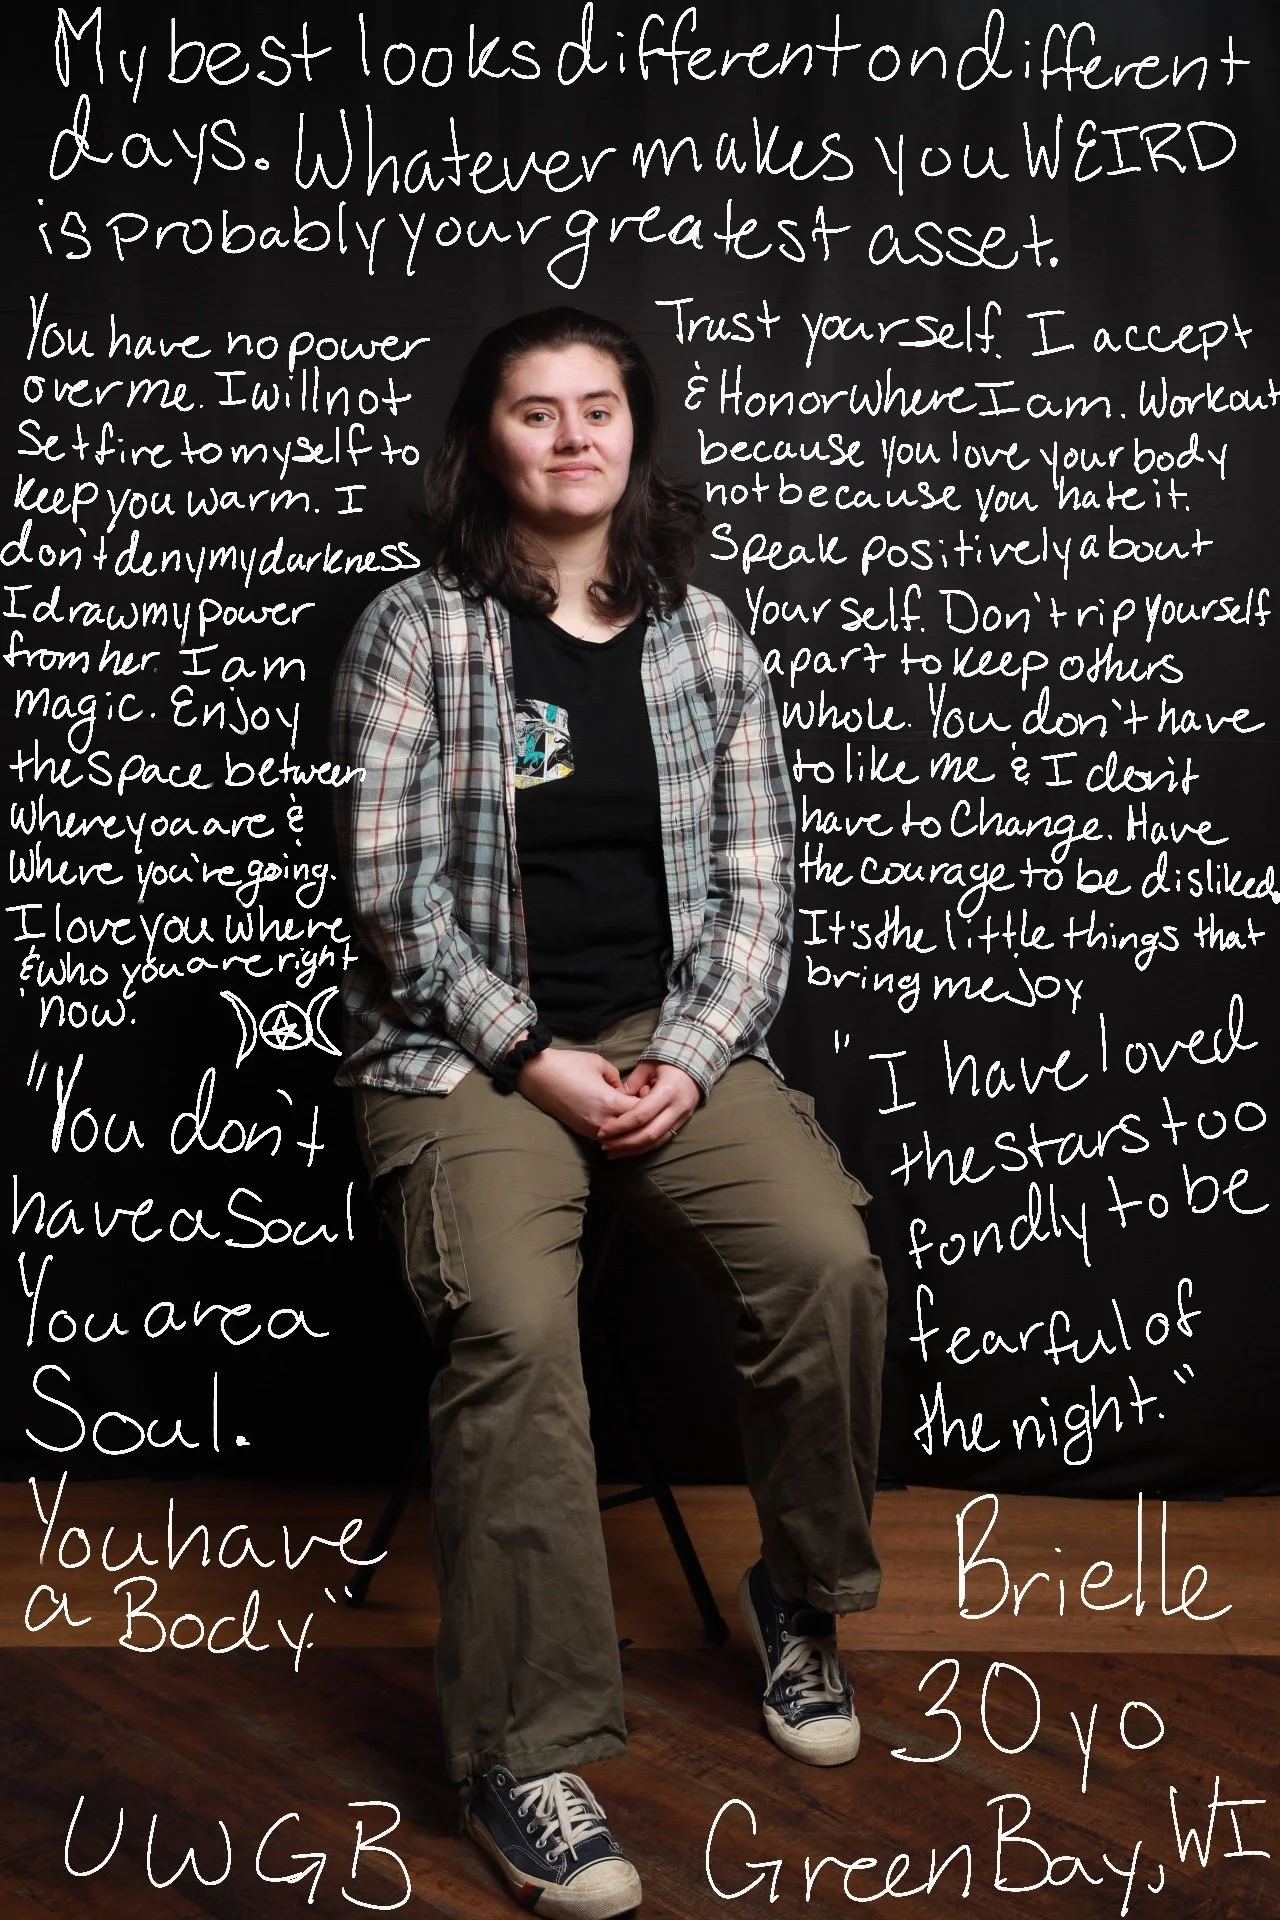 My best looks different on different
days. Whatever makes you WEIRD
is probably your greatest asset.
You have no power
over me. I will not
Set fire to myself to
keep you warm. I
don't deny my darkness
I draw my power
from her. I am
magic. Enjoy
the space between
where you are &
where you're going.
I love you where
& who you are right
now.
"You don't
have a Soul
You are a
Soul.
You have
a Body."
Trust yourself. I accept
& Honor where I am. Workout
because you love your body
not because you hate it.
Speak positively about
Yourself. Don't rip yourself
apart to keep others
whole. You don't have
to like me & I don't
have to Change. Have
the courage to be disliked.
It's the little things that
bring me Joy
"I have loved
the stars too
fondly to be
fearful of
the night."
Brielle
30 yo
UWGB
Green Bay, WI